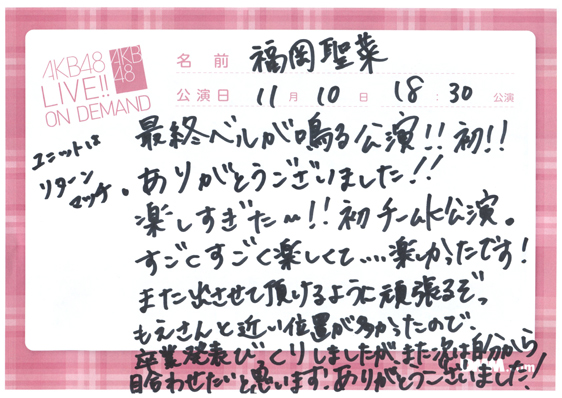 AKB48
LIVE!!
ON DEMAND
AKB
48
名前 福岡聖菜
公演日 11月10日 18:30公演
ユニットは
リターン
マッチ。
最終ベルが鳴る公演!!初!!
ありがとうございました!!
楽しすぎた〜!!初チームK公演。
すごくすごく楽しくて....楽しかったです!
また出させて頂けるように頑張るぞっ
もえさんと近い位置が多かったので、
卒業発表びっくりしましたが、また次は自分から
目合わせたいと思います。ありがとうございました!
.com